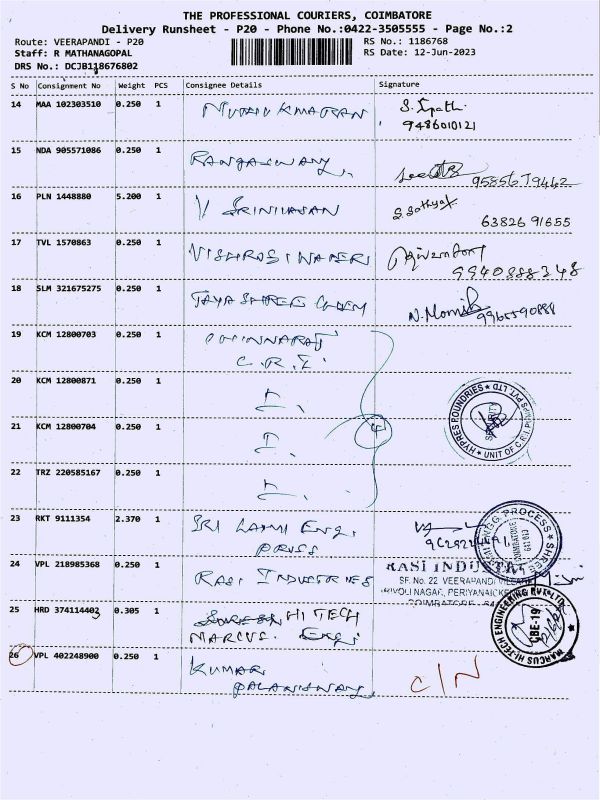 THE PROFESSIONAL COURIERS, COIMBATORE
Delivery Runsheet - P20 - Phone No.:0422-3505555 - Page No.:2
Route: VEERAPANDI - P20
RS No.: 1186768
Staff: R MATHANAGOPAL
RS Date: 12-Jun-2023
DRS No.: DCJB118676802
S No Consignment No Weight PCS Consignee Details Signature
14 MAA 102303510 0.250 1
9486010121
15 NDA 905571086 0.250 1 RANGASWAMY
95856 79462
16 PLN 1448880 5.200 1 V SRINIVASAN S. Sathya
63826 91655
17 TVL 1570863 0.250 1
9940888348
18 SLM 321675275 0.250 1 JAYA SHREE CHEM
9965590888
19 KCM 12800703 0.250 1 CHINNARAJ
C.R.I.
20 KCM 12800871 0.250 1
HYPRES FOUNDRIES ★ UNIT OF C.R.I. PUMPS PVT. LTD. ★
SECURITY
21 KCM 12800704 0.250 1
4
22 TRZ 220585167 0.250 1
23 RKT 9111354 2.370 1 SRI LAXMI ENG.
COIMBATORE
24 VPL 218985368 0.250 1 RASI INDUSTRIES
RASI INDUSTR
SF. No. 22 VEERAPANDI VILLAGE
COIMBATORE
25 HRD 374114403 0.305 1 HI TECH
MARCUS. Engi
MARCUS HI-TECH ENGINEERING PVT. LTD.
CBE-19
26 VPL 402248900 0.250 1 KUMAR
PALANISWAMY
C/N